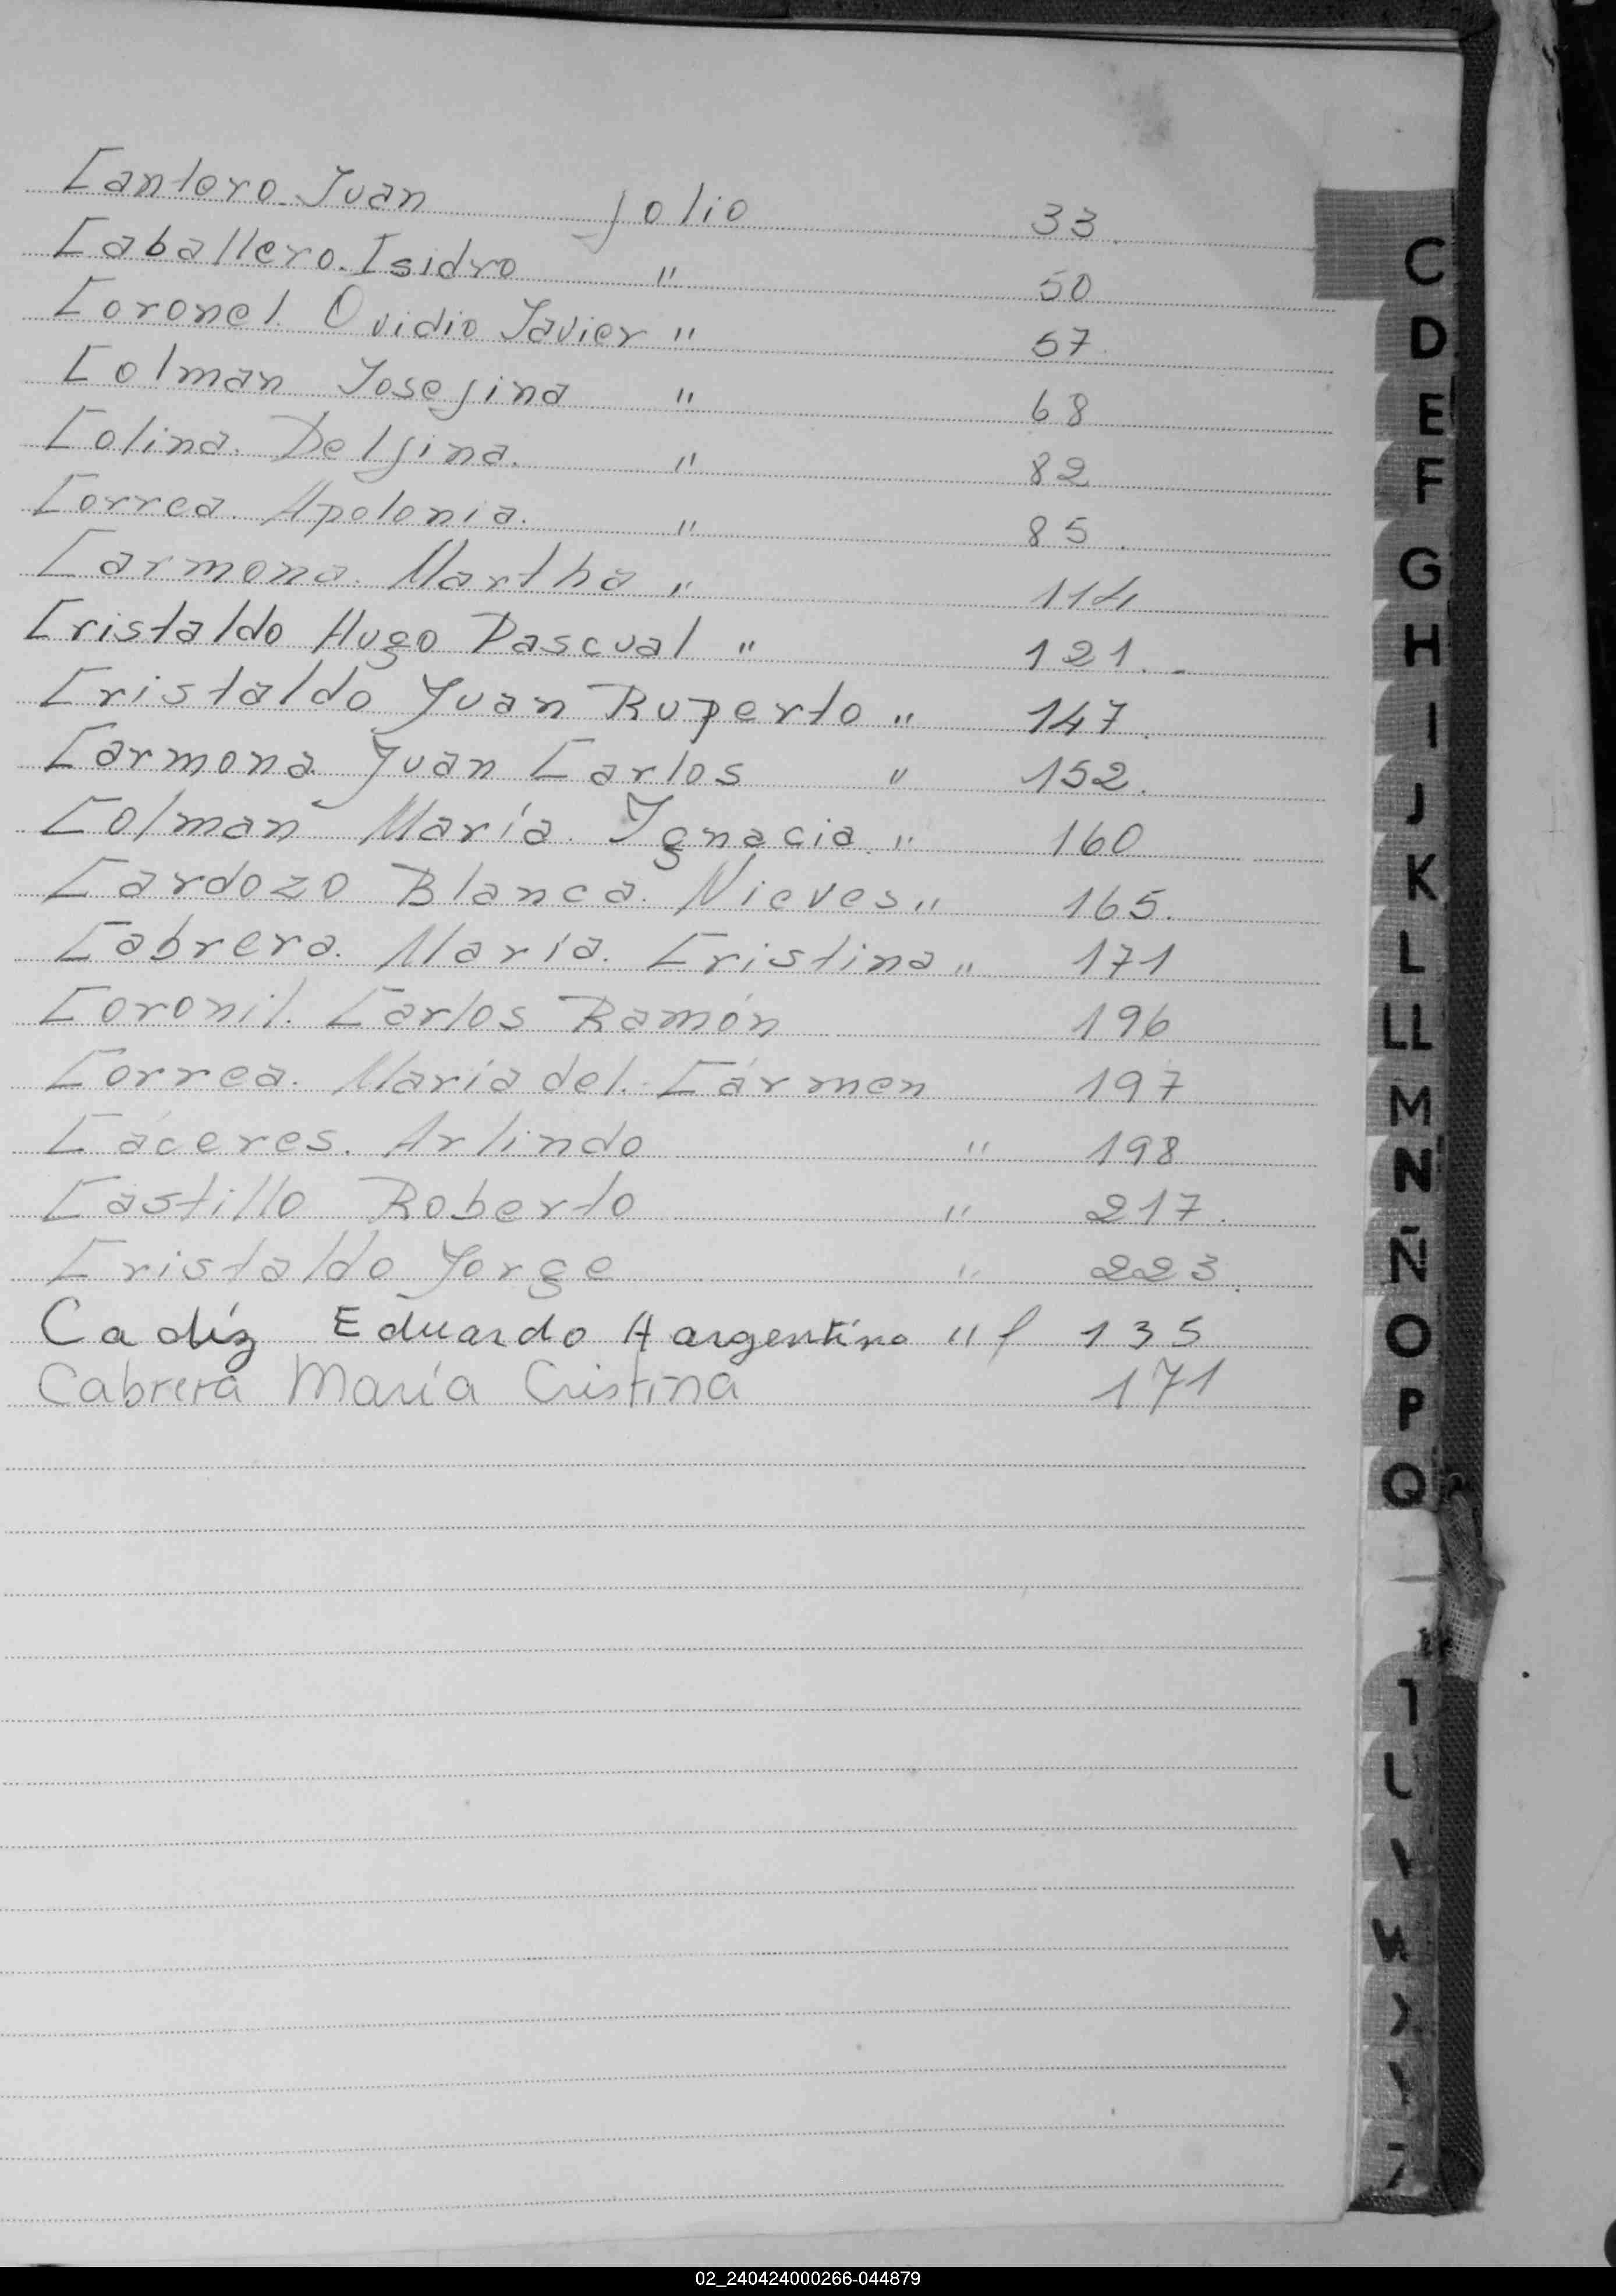 Cantero Juan folio 33.
Caballero. Isidro " 50
Coronel. Ovidio Javier " 57.
Colman Josefina " 68
Colina. Delfina. " 82
Correa. Apolonia. " 85.
Carmona. Martha " 114
Cristaldo Hugo Pascual " 121. -
Cristaldo Juan Ruperto " 147.
Carmona Juan Carlos " 152.
Colman María. Ygnacia. " 160
Cardozo Blanca. Nieves " 165.
Cabrera. María. Cristina " 171
Coronil. Carlos Ramón 196
Correa. Maria del. Cármen 197
Cáceres. Arlindo " 198
Castillo Roberto " 217.
Cristaldo Jorge " 223.
Cadíz Eduardo Argentino " f 135
Cabrera María Cristina 171
C
D
E
F
G
H
I
J
K
L
LL
M
N
Ñ
O
P
Q
02_240424000266-044879